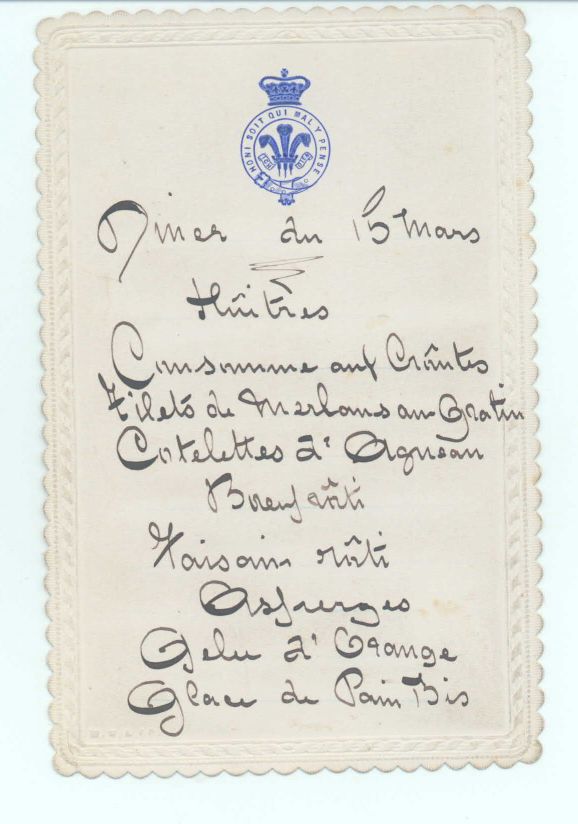 HONI SOIT QUI MAL Y PENSE
ICH DIEN
Diner du 15 Mars
Huîtres
Consomme aux Croûtes
Filets de Merlans au Gratin
Cotelettes d'Agneau
Boeuf rôti
Faisan rôti
Asperges
Gelee d'Orange
Glace de Pain Bis